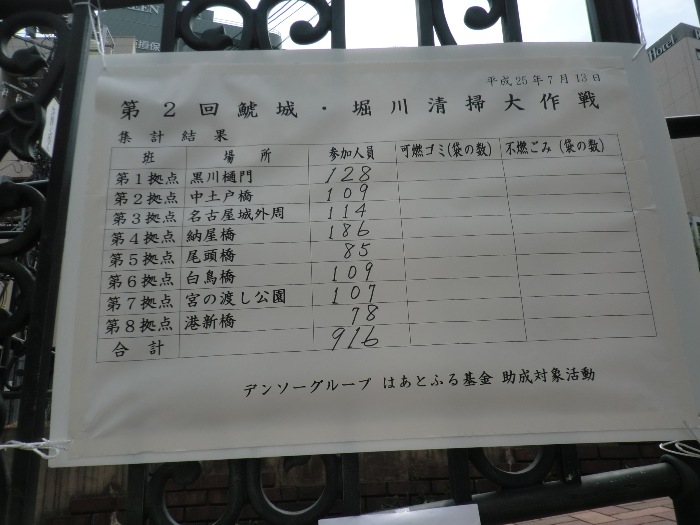 平成25年7月13日
第2回鯱城・堀川清掃大作戦
集計結果
班 場所 参加人員 可燃ゴミ(袋の数) 不燃ごみ(袋の数)
第1拠点 黒川樋門 128
第2拠点 中土戸橋 109
第3拠点 名古屋城外周 114
第4拠点 納屋橋 186
第5拠点 尾頭橋 85
第6拠点 白鳥橋 109
第7拠点 宮の渡し公園 107
第8拠点 港新橋 78
合計 916
デンソーグループ はあとふる基金 助成対象活動
Hotel